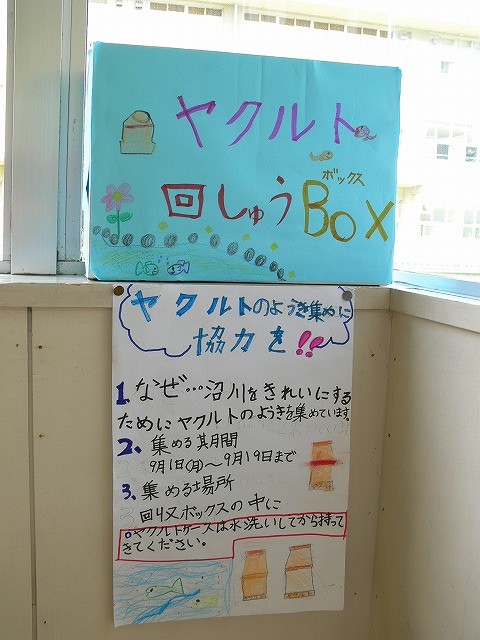 ヤクルト
回しゅう
ボックス
BOX
ヤクルトのようき集めに
協力を!!
1. なぜ…沼川をきれいにする
ためにヤクルトのようきを集めています。
2. 集める期間
9月1日(月)～9月19日まで
3. 集める場所
回収ボックスの中に
。ヤクルトケースは水洗いしてから持って
きてください。